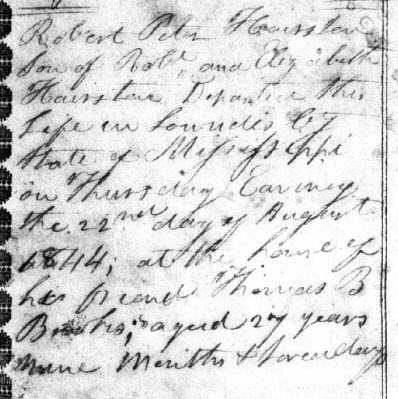 Robert Peter Hairston
Son of Robt. and Elizabeth
Hairston Departed this
Life in Lowndes Cty
State of Mississippi
on Thursday Eavning
the 22nd day of August
1844; at the house of
his friend Thomas B
aged 27 years
nine Months & days